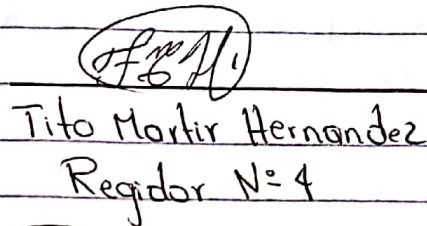 Tito Martir Hernandez
Regidor Nº 4